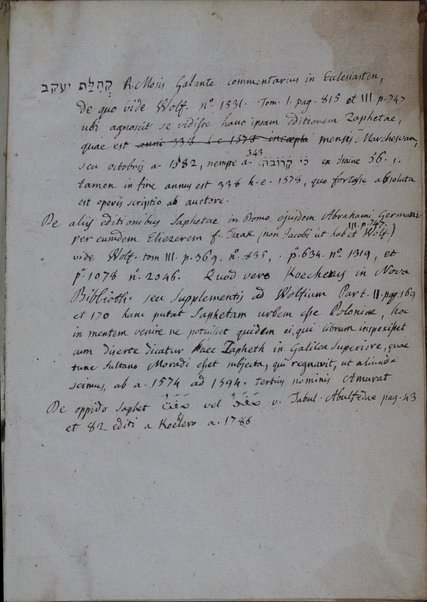 קְהִלַּת יעקב R. Mosis Galante commentarius in Ecclesiasten,
de quo vide Wolf. n.º 1531. Tom. I. pag. 815 et III p. 747
ubi agnoscit se vidisse hanc ipsam editionem Zaphetae,
quae est anni 338 h.e. 1578 incepta mensis Marcheswan,
343
seu octobris a. 1582, nempe a. כי קרובה ex Isaiae 56. 1.
tamen in fine annus est 338 h.e. 1578, quo fortasse absoluta
est operis scriptio ab auctore.
De aliis editionibus Saphetae in Domo ejusdem Abrahami Germani
III p. 747.
per eundem Eliezerem f. Isaak (non Jacobi ut habet Wolf.)
vide Wolf. tom III. p. 369. n.º 835, p. 634. n.º 1319, et
p. 1078 n.º 2046. Quod vero Koecherus in Nova
Biblioth. seu Supplementis ad Wolfium Part. II. pgg. 169
et 170 hanc putat Saphetam urbem esse Poloniae, hoc
in mentem venire ne potuisset quidem ei, qui librum inspexisset
cum diserte dicatur haec Zapheth in Galilea superiore, quae
tunc Sultano Moradi esset subjecta, qui regnavit, ut aliunde
scimus, ab a. 1574 ad 1594. tertius nominis Amurat
De oppido Saphet vel v. Tabul. Abulfedae pag. 43
et 82 editi a Koelero a. 1786